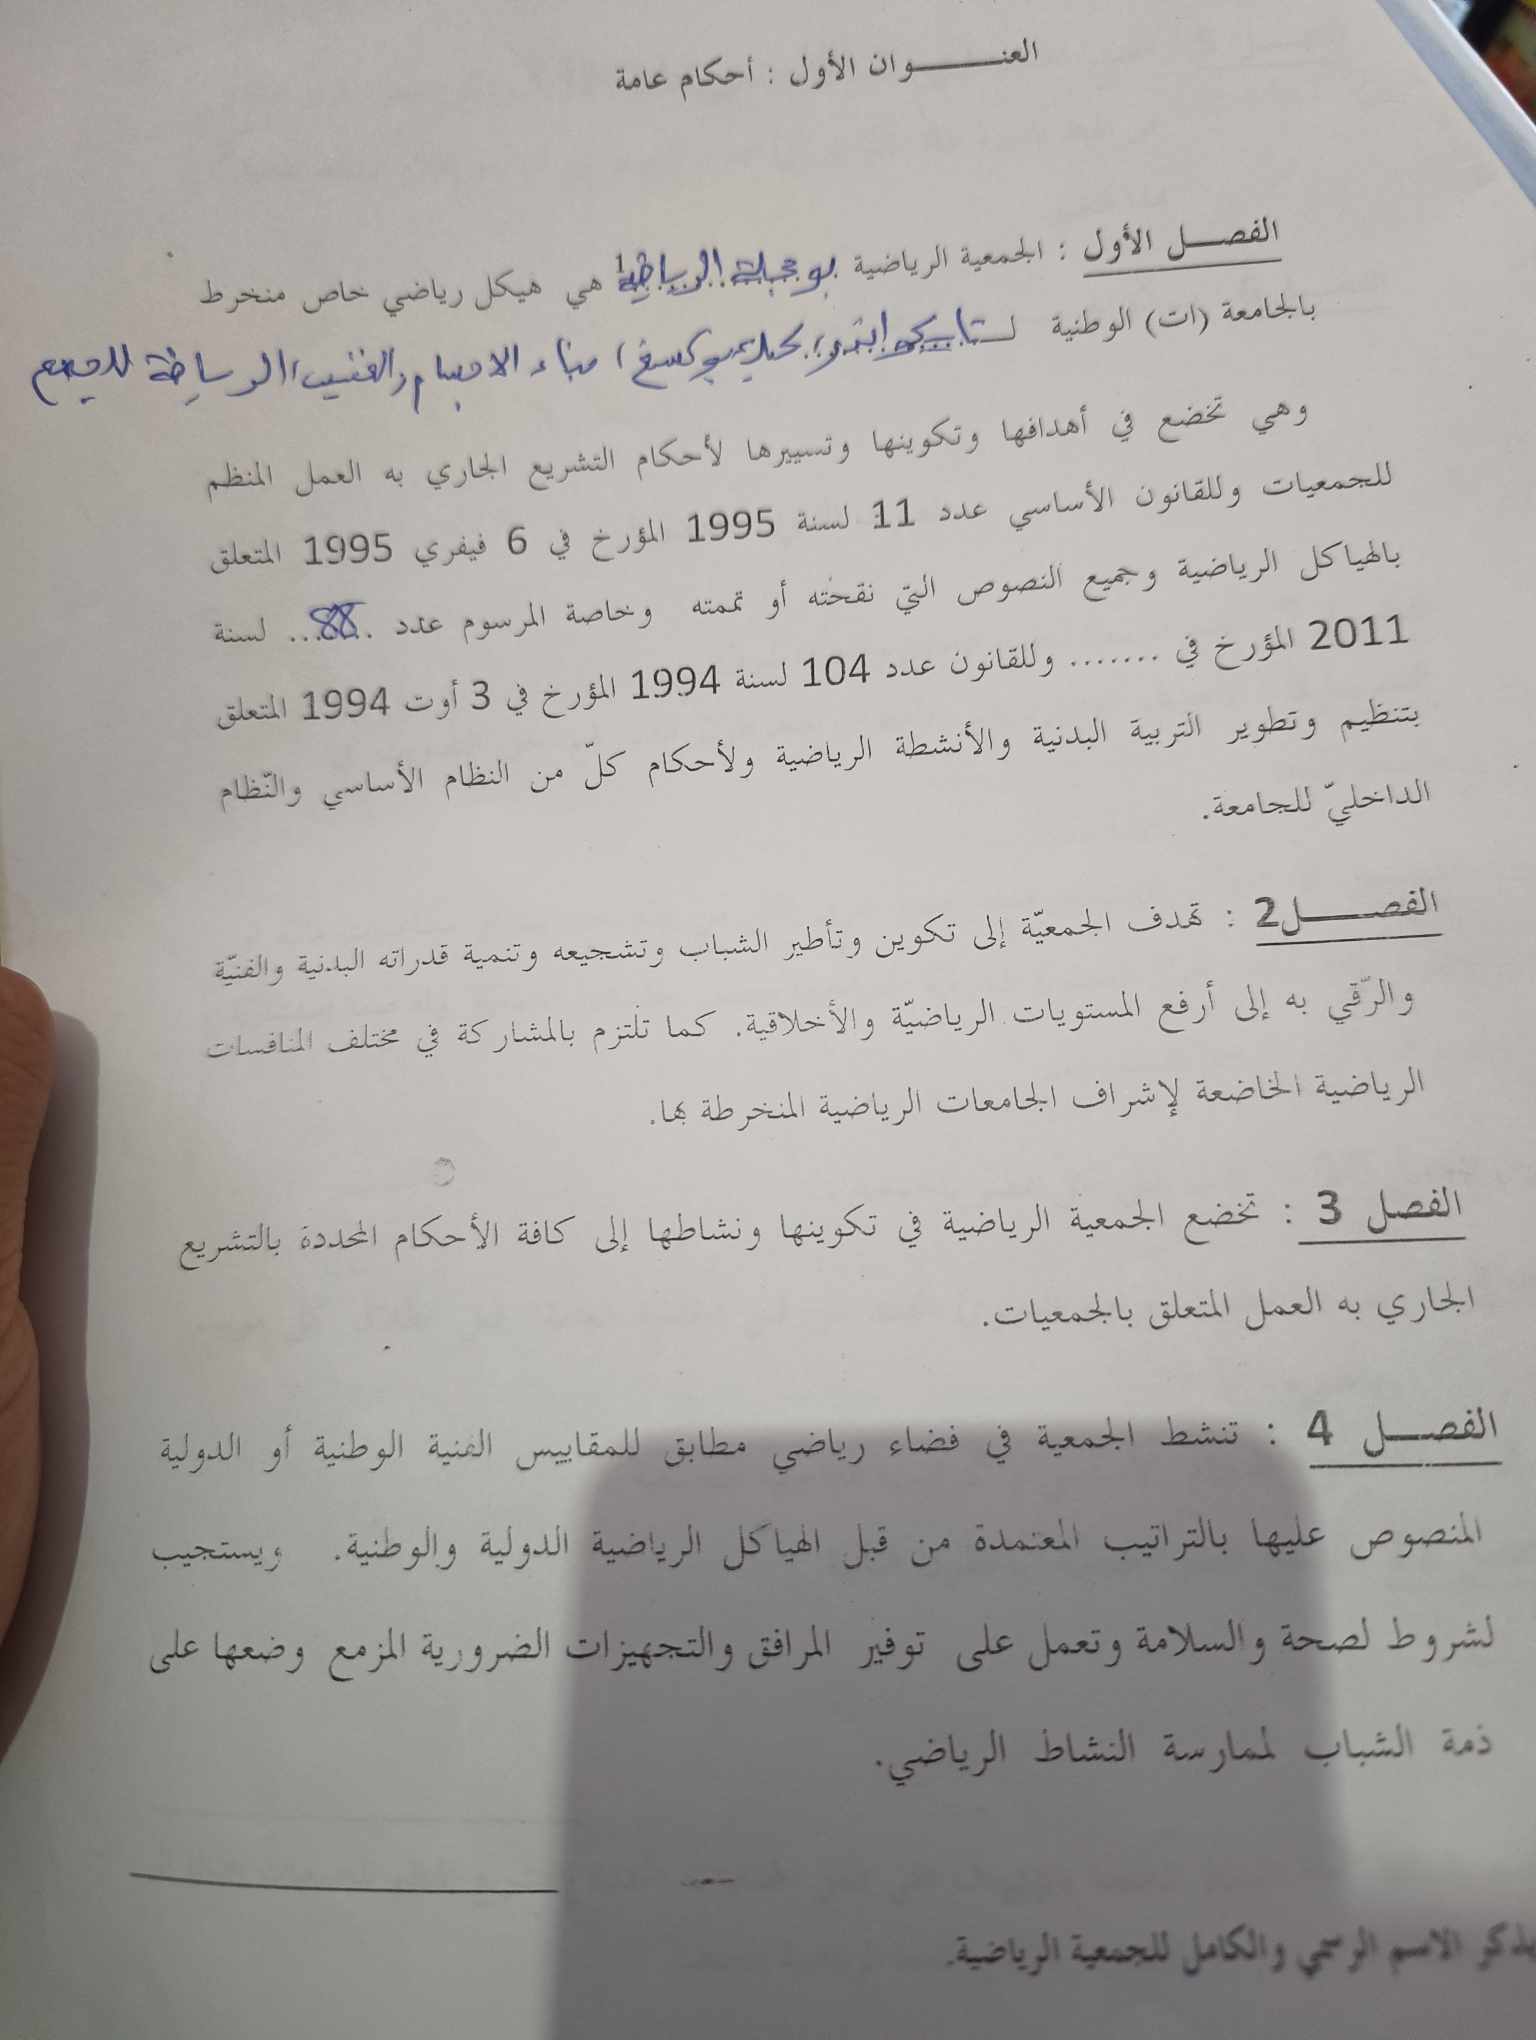 العنـــــوان الأول : أحكام عامة
الفصـــل الأول : الجمعية الرياضية بوحجلة الرياضية 1 هي هيكل رياضي خاص منخرط
بالجامعة (ات) الوطنية لـ بناء الاجسام الرياضة للجميع
وهي تخضع في أهدافها وتكوينها وتسييرها لأحكام التشريع الجاري به العمل المنظم
للجمعيات وللقانون الأساسي عدد 11 لسنة 1995 المؤرخ في 6 فيفري 1995 المتعلق
بالهياكل الرياضية وجميع النصوص التي نقحته أو تممته وخاصة المرسوم عدد ..88.. لسنة
2011 المؤرخ في ....... وللقانون عدد 104 لسنة 1994 المؤرخ في 3 أوت 1994 المتعلق
بتنظيم وتطوير التربية البدنية والأنشطة الرياضية ولأحكام كلّ من النظام الأساسي والنّظام
الداخليّ للجامعة.
الفصـــــل2 : تهدف الجمعيّة إلى تكوين وتأطير الشباب وتشجيعه وتنمية قدراته البدنية والفنيّة
والرّقي به إلى أرفع المستويات الرياضيّة والأخلاقية. كما تلتزم بالمشاركة في مختلف المنافسات
الرياضية الخاضعة لإشراف الجامعات الرياضية المنخرطة بها.
الفصل 3 : تخضع الجمعية الرياضية في تكوينها ونشاطها إلى كافة الأحكام المحددة بالتشريع
الجاري به العمل المتعلق بالجمعيات.
الفصـــل 4 : تنشط الجمعية في فضاء رياضي مطابق للمقاييس الفنية الوطنية أو الدولية
المنصوص عليها بالتراتيب المعتمدة من قبل الهياكل الرياضية الدولية والوطنية. ويستجيب
لشروط لصحة والسلامة وتعمل على توفير المرافق والتجهيزات الضرورية المزمع وضعها على
ذمة الشباب لممارسة النشاط الرياضي.
يذكر الاسم الرسمي والكامل للجمعية الرياضية.